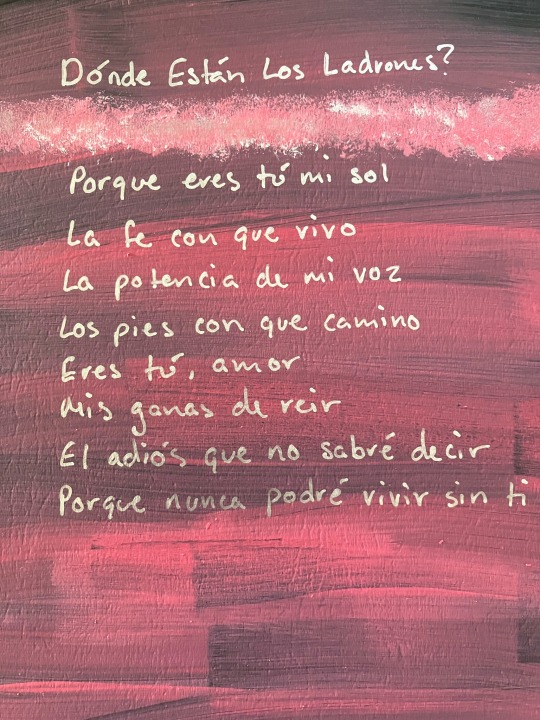 Dónde Están Los Ladrones?
Porque eres tú mi sol
La fe con que vivo
La potencia de mi voz
Los pies con que camino
Eres tú, amor
Mis ganas de reir
El adiós que no sabré decir
Porque nunca podré vivir sin ti